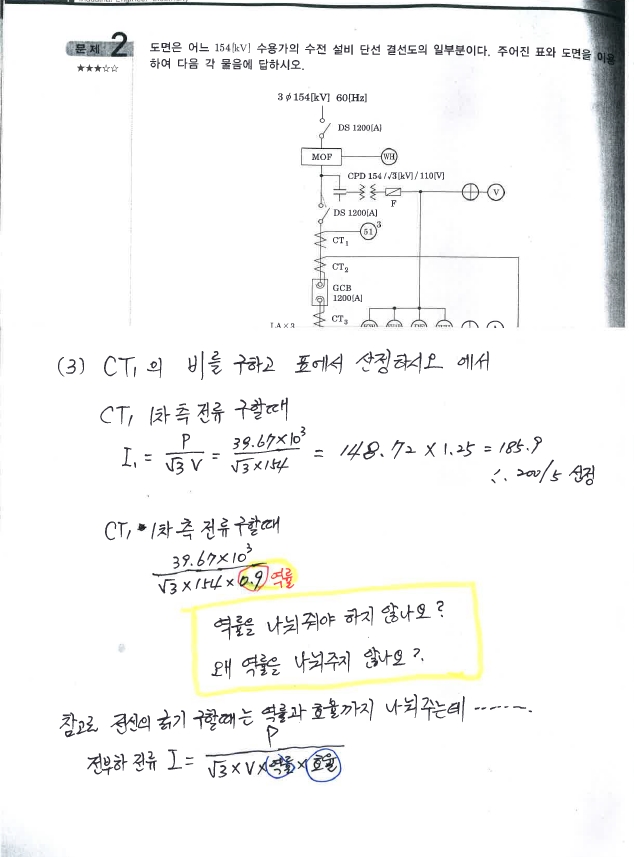 문제 2
★★★☆☆
도면은 어느 154[kV] 수용가의 수전 설비 단선 결선도의 일부분이다. 주어진 표와 도면을 이용
하여 다음 각 물음에 답하시오.
3φ154[kV] 60[Hz]
DS 1200[A]
MOF
WH
CPD 154/√3[kV]/110[V]
F
V
DS 1200[A]
51
3
CT₁
CT₂
GCB
1200[A]
CT₃
LA×3
(3) CT₁의 비를 구하고 표에서 산정하시오 에서
CT₁ 1차측 전류 구할때
I₁ = P / √3 V = 39.67×10³ / √3×154 = 148.72 × 1.25 = 185.9
∴ 200/5 선정
CT₁ 1차측 전류구할때
39.67×10³ / √3×154×0.9 역률
역률을 나눠줘야 하지 않나요?
왜 역률을 나눠주지 않나요?
참고로 전선의 굵기 구할때는 역률과 효율까지 나눠주는데 .......
전부하 전류 I = P / √3×V×역률×효율